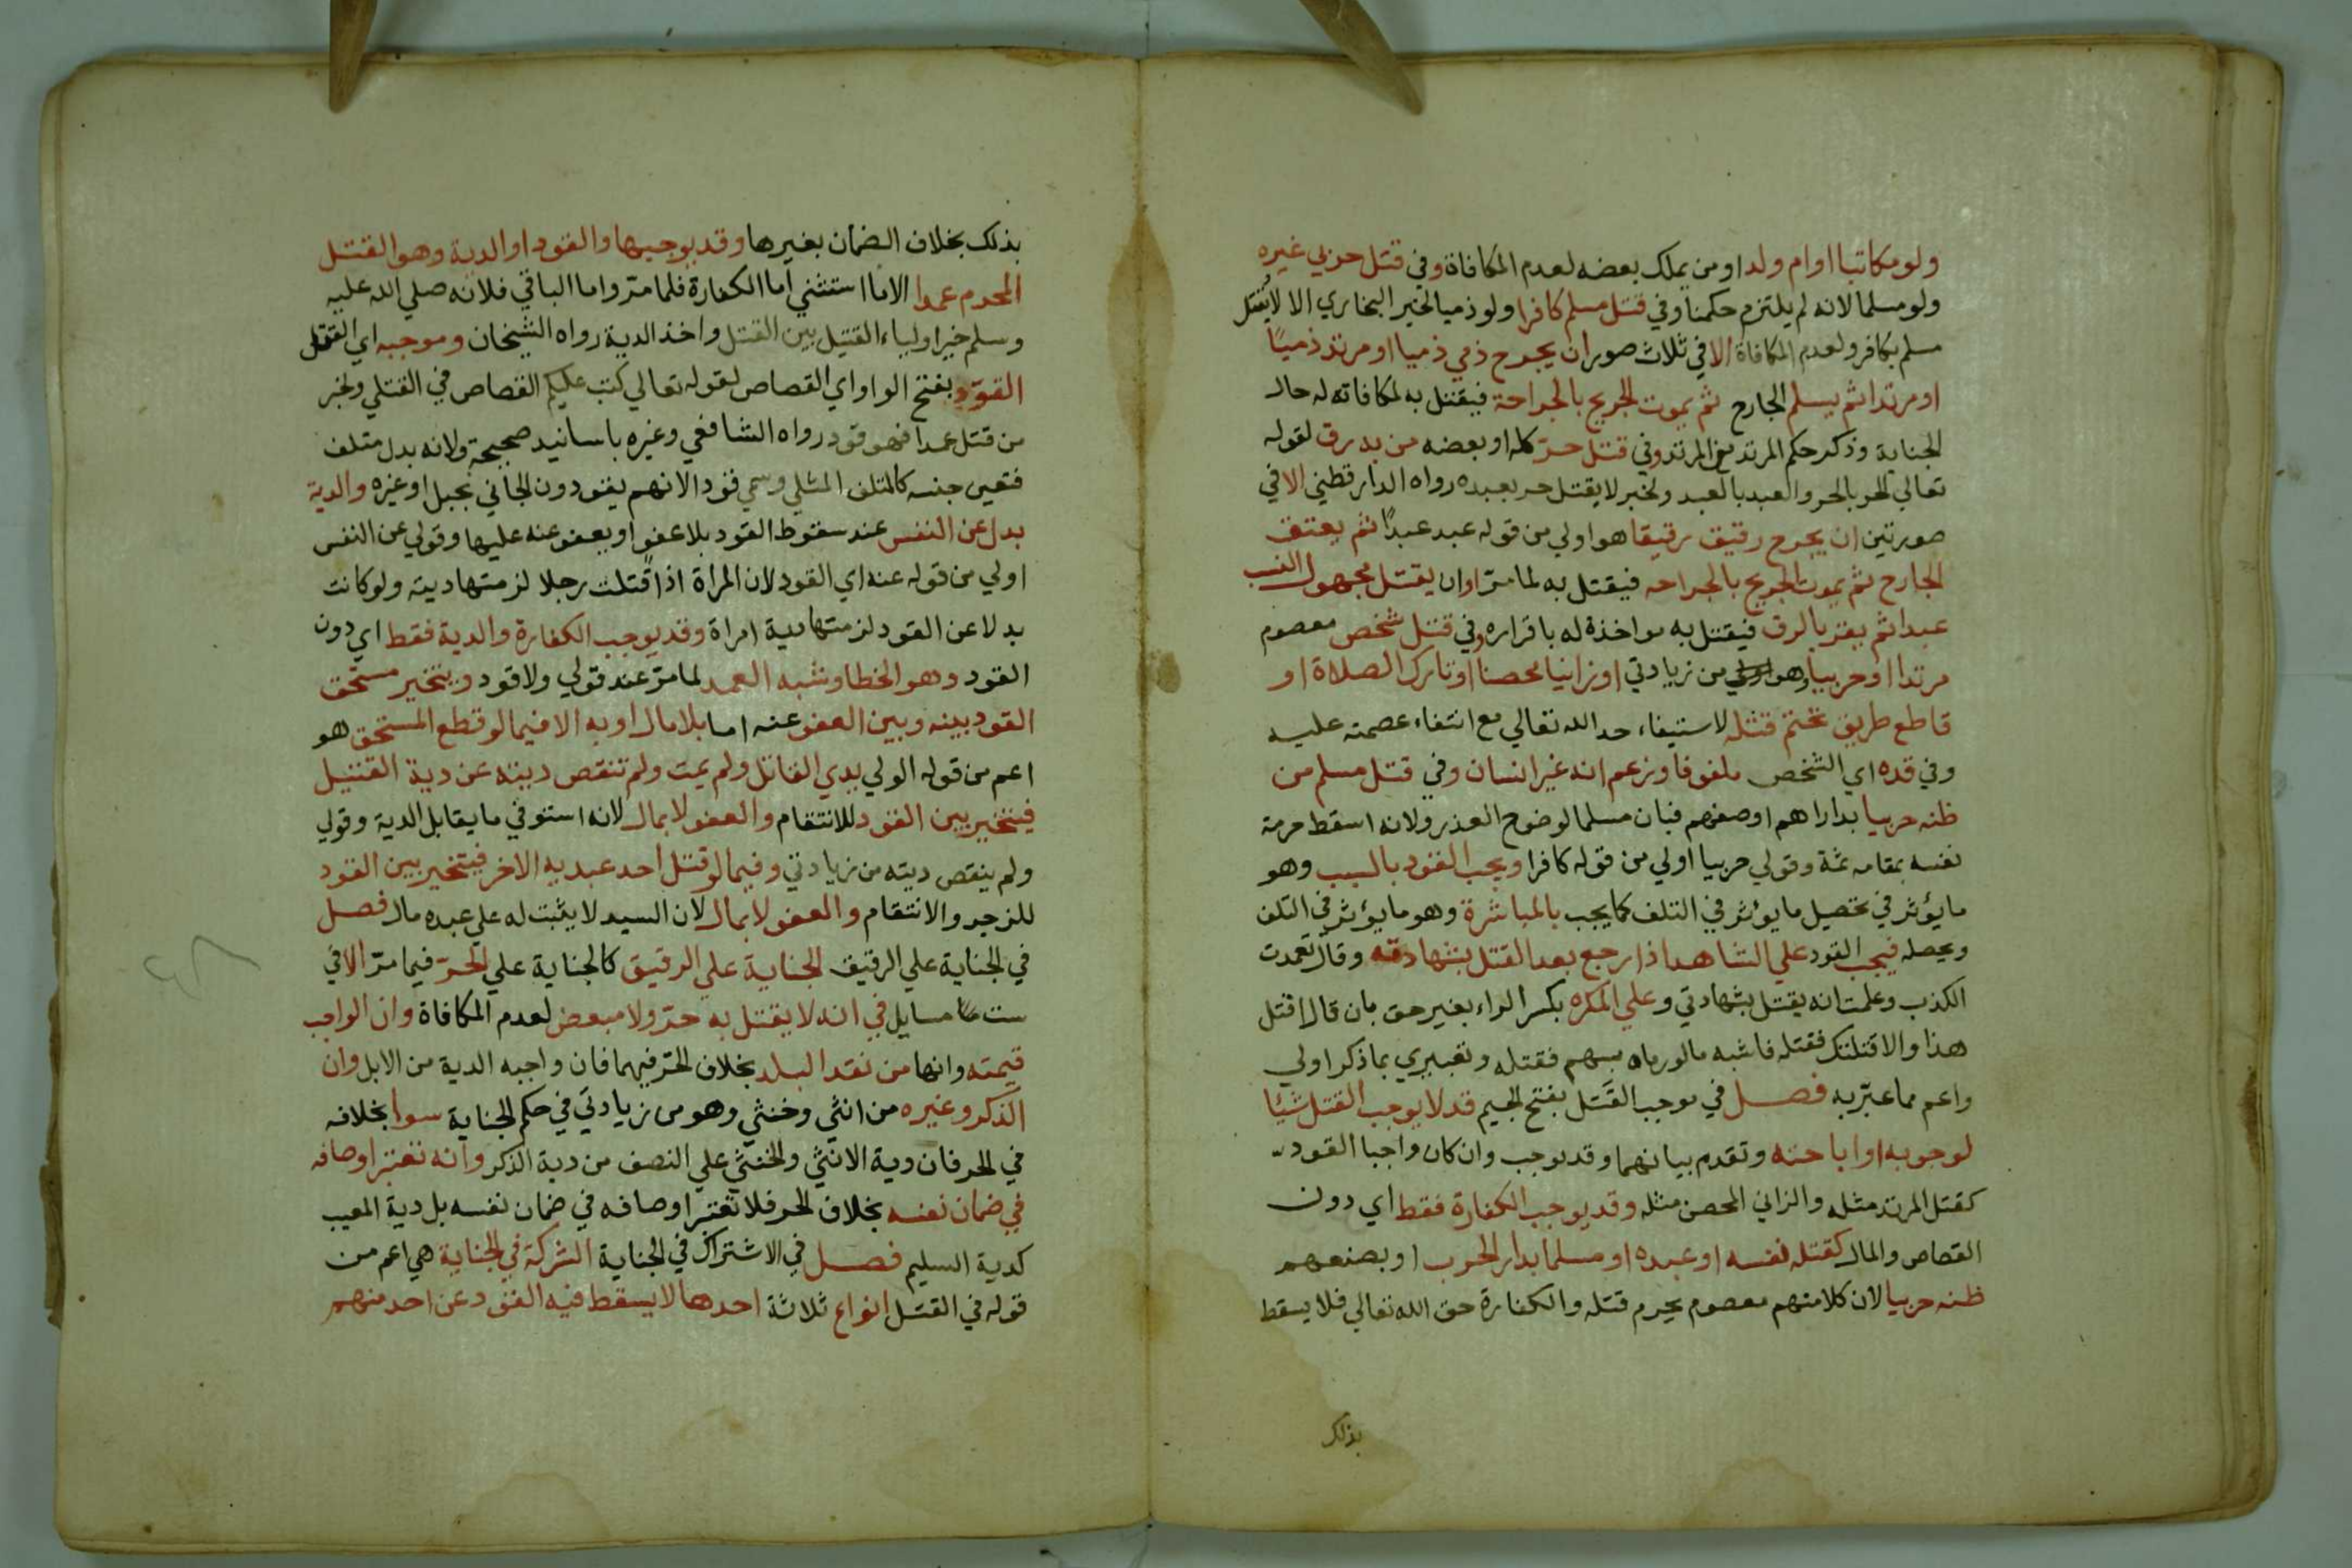 ولو مكاتبا او ام ولد او من يملك بعضه لعدم المكافاة وفي قتل حربي غيره
ولو مسلما لانه لم يلتزم حكمنا وفي قتل مسلم كافرا ولو ذميا لخبر البخاري الا لا يقتل
مسلم بكافر ولعدم المكافاة الا في ثلاث صور ان يجرح ذمي ذميا او مرتد ذميًا
او مرتدا ثم يسلم الجارح ثم يموت الجريح بالجراحة فيقتل به لمكافاته له حال
الجناية وذكر حكم المرتد مع المرتد وفي قتل حرّ كله او بعضه من به رق لقوله
تعالي الحر بالحر والعبد بالعبد ولخبر لا يقتل حر بعبده رواه الدارقطني الا في
صورتين ان يجرح رقيق رقيقا هو اولي من قوله عبد عبدًا ثم يعتق
الجارح ثم يموت الجريح بالجراحه فيقتل به لما مرّ او ان يقتل مجهول النسب
عبدا ثم يقر بالرق فيقتل به مواخذة له باقراره وفي قتل شخص معصوم
مرتدا او حربيا وهو من زيادتي او زانيا محصنا او تارك الصلاة او
قاطع طريق تحتم قتله لاستيفاء حد الله تعالي مع انتفاء عصمته عليه
وفي قده اي الشخص ملفوفا وزعم انه غير انسان وفي قتل مسلم من
ظنه حربيا بدارهم او صفهم فبان مسلما لوضوح العذر ولانه اسقط حرمة
نفسه بمقامه ثمة وقولي حربيا اولي من قوله كافرا ويجب القود بالسبب وهو
ما يؤثر في تحصيل ما يوثر في التلف كما يجب بالمباشرة وهو ما يؤثر في التلف
ويحصله فيجب القود علي الشاهد اذا رجع بعد القتل بشهادته وقال تعمدت
الكذب وعلمت انه يقتل بشهادتي وعلي المكره بكسر الراء بغير حق بان قال اقتل
هذا والا قتلتك فقتله فاشبه ما لو رماه بسهم فقتله وتعبيري بما ذكر اولي
واعم مما عبّر به فصل في موجب القَتل بفتح الجيم قد لا يوجب القتل شيًا
لوجوبه او اباحته وتقدم بيانهما وقد يوجب وان كان واجبا القود
كقتل المرتد مثله والزاني المحصن مثله وقد يوجب الكفارة فقط اي دون
القصاص والمال كقتله نفسه او عبده او مسلما بدار الحرب او بصفهم
ظنه حربيا لان كلا منهم معصوم يحرم قتله والكفارة حق الله تعالي فلا يسقط
بذلك
بذلك بخلاف الضمان بغيرها وقد يوجبها والقود او الدية وهو القتل
المحرم عمدا الا ما استثني اما الكفارة فلما مرّ واما الباقي فلانه صلي الله عليه
وسلم خير اولياء القتيل بين القتل واخذ الدية رواه الشيخان وموجبه اي القتل
القوَد بفتح الواو اي القصاص لقوله تعالي كتب عليكم القصاص في القتلي ولخبر
من قتل عمدا فهو قود رواه الشافعي وغيره باسانيد صحيحة ولانه بدل متلف
فتعين جنسه كالمتلف المثلي وسمي قودا لانهم يقودون الجاني بحبل او غيره والدية
بدل عن النفس عند سقوط القود بلا عفو او بعفو عنه عليها وقولي عن النفس
اولي من قوله عنه اي القود لان المراة اذا قتلت رجلا لزمتها دية ولو كانت
بدلا عن القود لزمتها دية امراة وقد يوجب الكفارة والدية فقط اي دون
القود وهو الخطا وشبه العمد لما مرّ عند قولي ولا قود ويتخير مستحق
القود بينه وبين العفو عنه اما بلا مال او به الا فيما لو قطع المستحق هو
اعم من قوله الولي يدي القاتل ولم يمت ولم تنقص ديته عن دية القتيل
فيتخير بين القود للانتقام والعفو لا بمال لانه استوفي ما يقابل الدية وقولي
ولم ينقص ديته من زيادتي وفيما لو قتل احد عبديه الاخر فيتخير بين القود
للزجر والانتقام والعفو لا بمال لان السيد لا يثبت له علي عبده مال فصل
في الجناية علي الرقيق الجناية علي الرقيق كالجناية علي الحرّ فيما مرّ الا في
ست مسايل في انه لا يقتل به حرّ ولا مبعض لعدم المكافاة وان الواجب
قيمته وانها من نقد البلد بخلاف الحرّ فيهما فان واجبه الدية من الابل وان
الذكر وغيره من انثي وخنثي وهو من زيادتي في حكم الجناية سوا بخلافه
في الحر فان دية الانثي والخنثي علي النصف من دية الذكر وانه تعتبر اوصافه
في ضمان نفسه بخلاف الحر فلا تعتبر اوصافه في ضمان نفسه بل دية المعيب
كدية السليم فصل في الاشتراك في الجناية الشركة في الجناية هي اعم من
قوله في القتل انواع ثلاثة احدها لا يسقط فيه القود عن احد منهم